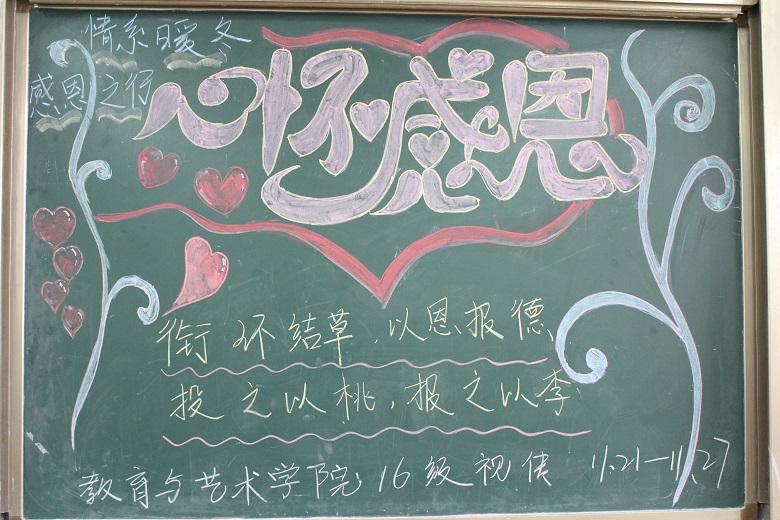 情系暖冬
感恩之行
心怀感恩
衔环结草,以恩报德
投之以桃,报之以李
教育与艺术学院 16级视传 11.21—11.27